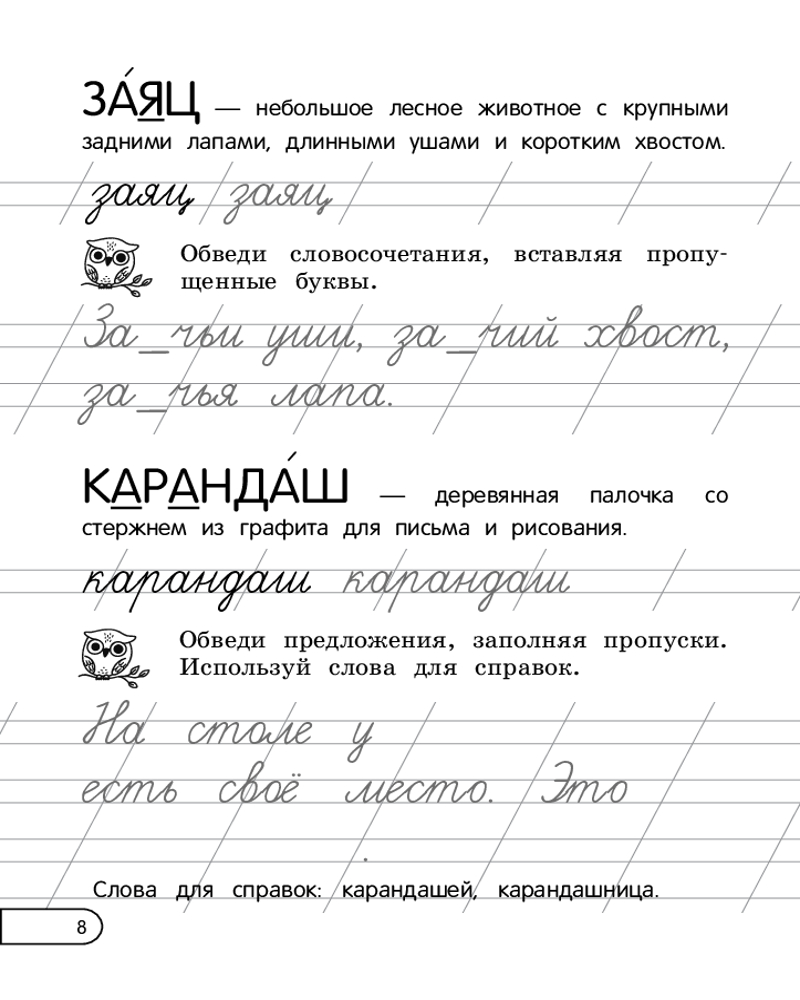 ЗА́ЯЦ — небольшое лесное животное с крупными
задними лапами, длинными ушами и коротким хвостом.
заяц заяц
Обведи словосочетания, вставляя пропу-
щенные буквы.
За_чьи уши, за_чий хвост,
за_чья лапа.
КАРАНДА́Ш — деревянная палочка со
стержнем из графита для письма и рисования.
карандаш карандаш
Обведи предложения, заполняя пропуски.
Используй слова для справок.
На столе у
есть своё место. Это
.
Слова для справок: карандашей, карандашница.
8